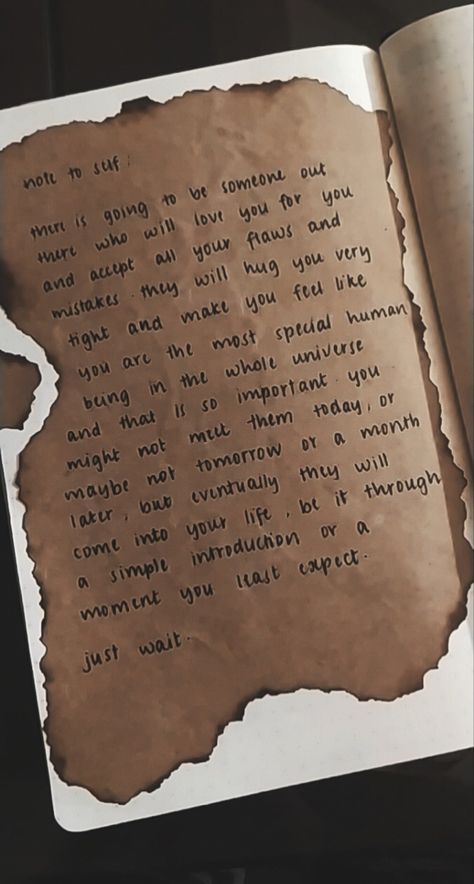 note to self:
there is going to be someone out
there who will love you for you
and accept all your flaws and
mistakes. they will hug you very
tight and make you feel like
you are the most special human
being in the whole universe
and that is so important. you
might not meet them today, or
maybe not tomorrow or a month
later, but eventually they will
come into your life, be it through
a simple introduction or a
moment you least expect.
just wait.